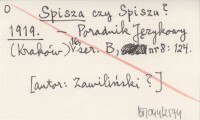 O
Spisza czy Spiszu?
1919. — Poradnik Językowy
(Kraków) ser. B, nr 8: 124.
[autor: Zawiliński?]